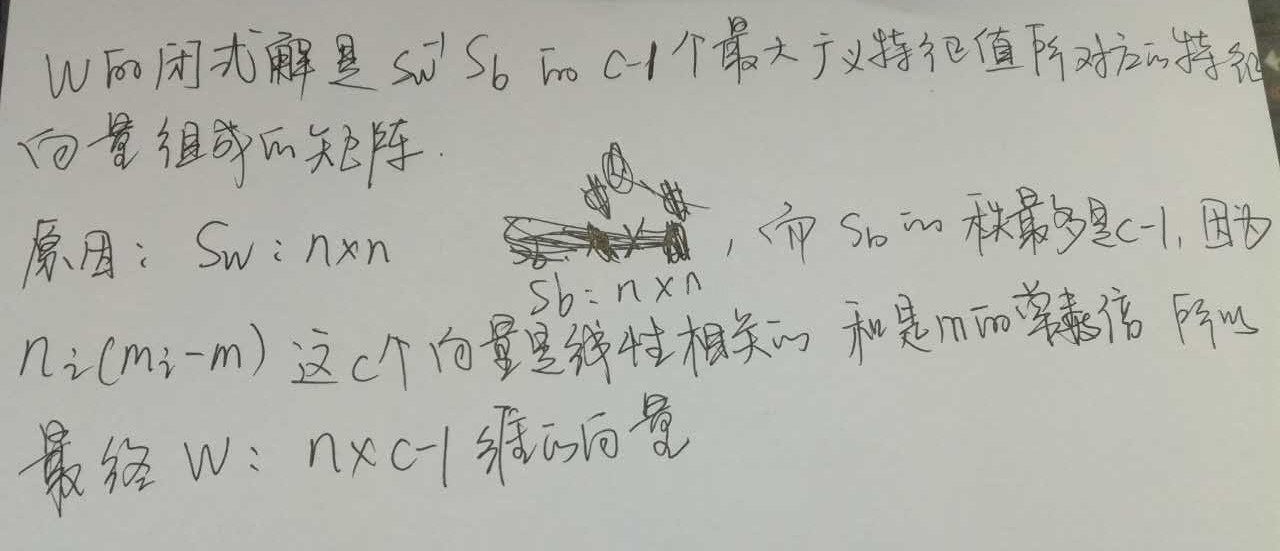 W的闭式解是 Sw⁻¹Sb 的 C-1个最大广义特征值所对应的特征
向量组成的矩阵.
原因: Sw: n×n Sb: n×n , 而 Sb 的 秩最多是c-1, 因为
ni(mi-m) 这c个向量是线性相关的 和是m的常数倍 所以
最终 W: n×c-1维的向量